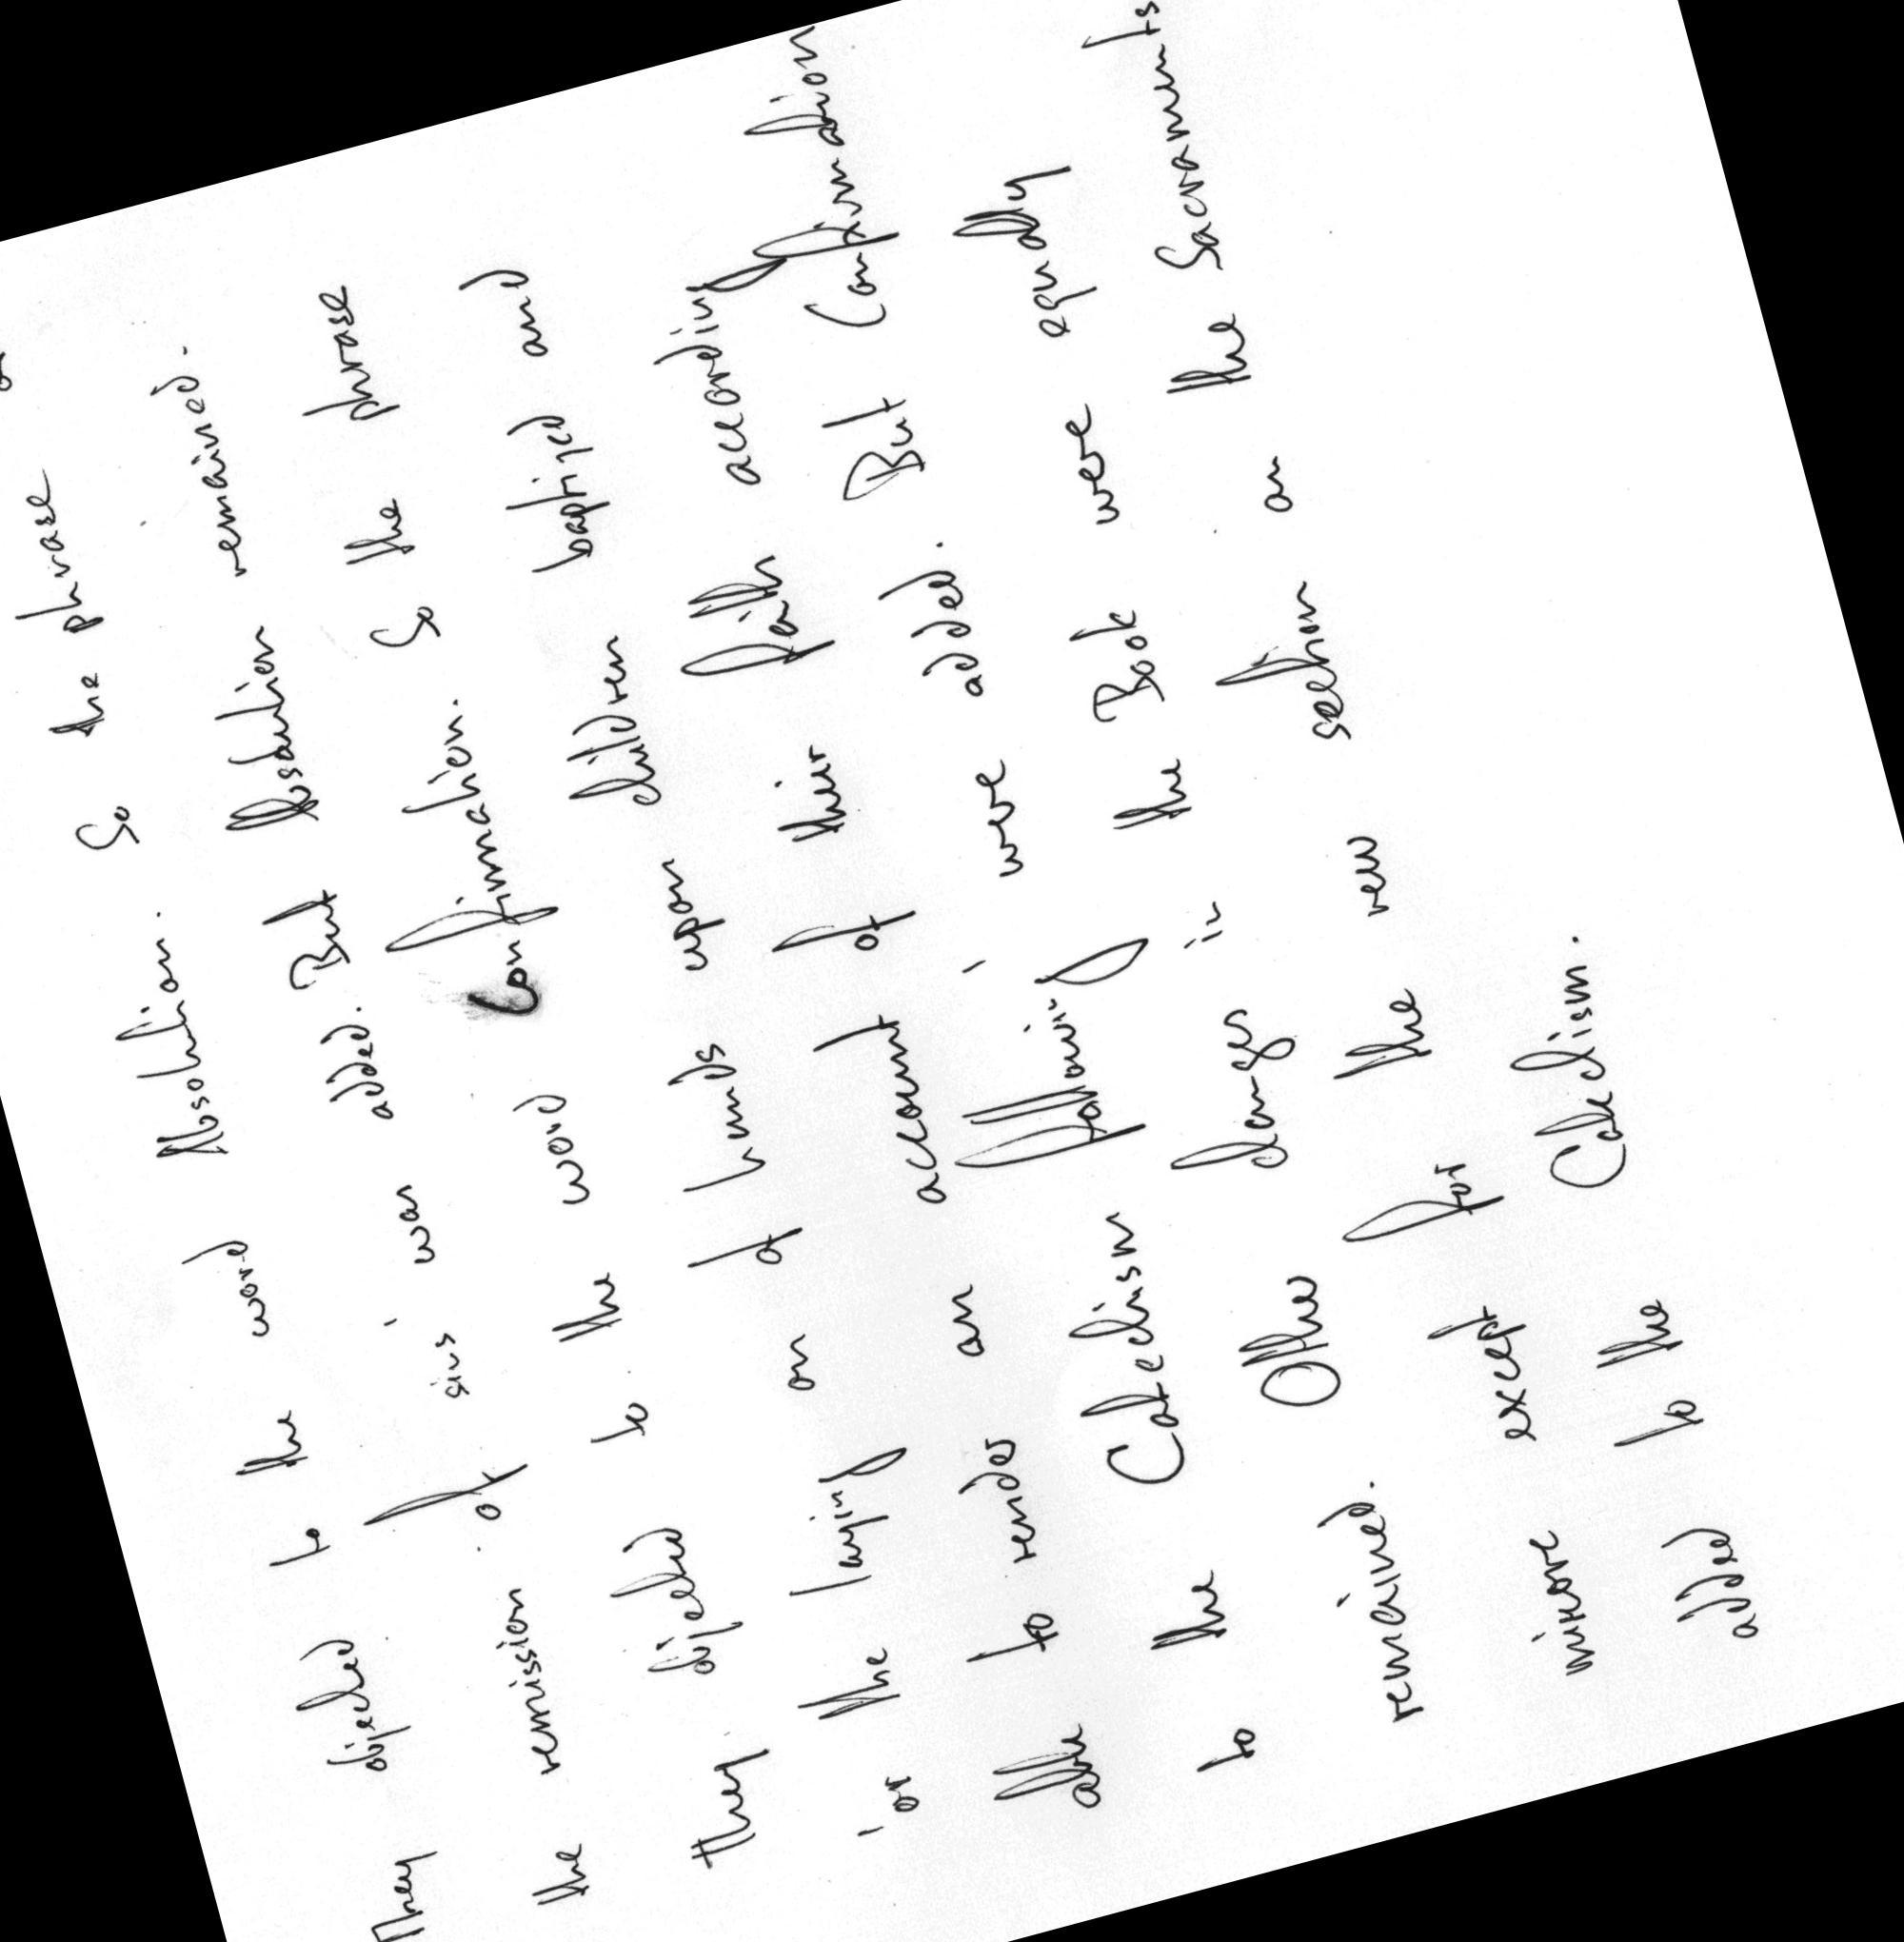 They objected to the word Absolution. So the phrase
the remission of sins' was added. But Absolution remained.
They objected to the word Confirmation. So the phrase
'or the laying on of hands upon children baptized and
able to render an account of their faith according
to the Catechism following' were added. But Confirmation
remained. Other changes in the Book were equally
minore except for the new section on the Sacraments
added to the Catechism.